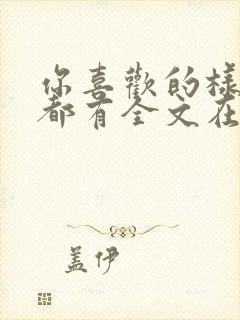 你喜歡的樣
都有全文在
盖伊